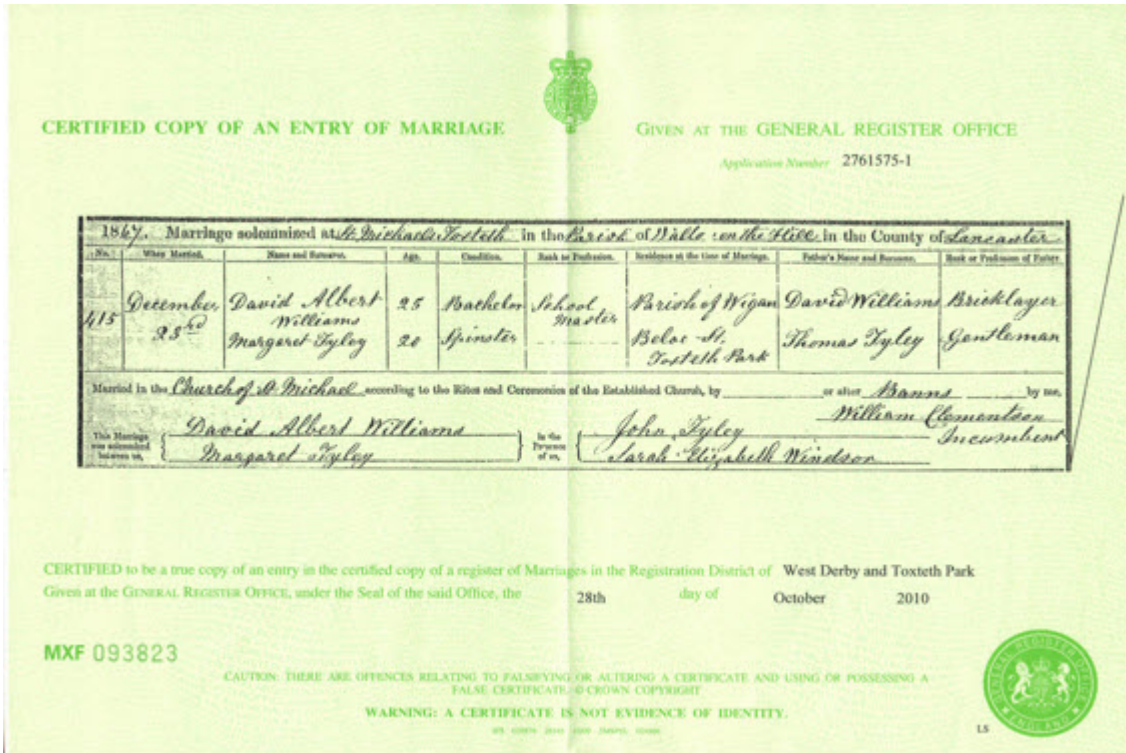 CERTIFIED COPY OF AN ENTRY OF MARRIAGE
GIVEN AT THE GENERAL REGISTER OFFICE
Application Number 2761575-1
1867. Marriage solemnized at St. Michaels Toxteth in the Parish of Walton on the Hill in the County of Lancaster
No. When Married. Name and Surname. Age. Condition. Rank or Profession. Residence at the time of Marriage. Father's Name and Surname. Rank or Profession of Father.
415 December 23rd David Albert Williams 25 Bachelor School Master Parish of Wigan David Williams Bricklayer
Margaret Tyley 20 Spinster Beloe St. Toxteth Park Thomas Tyley Gentleman
Married in the Church of St Michael according to the Rites and Ceremonies of the Established Church, by or after Banns by me,
William Clementson
Incumbent
This Marriage was solemnized between us,
David Albert Williams
Margaret Tyley
In the Presence of us,
John Tyley
Sarah Elizabeth Windsor
CERTIFIED to be a true copy of an entry in the certified copy of a register of Marriages in the Registration District of West Derby and Toxteth Park
Given at the GENERAL REGISTER OFFICE, under the Seal of the said Office, the 28th day of October 2010
MXF 093823
CAUTION: THERE ARE OFFENCES RELATING TO FALSIFYING OR ALTERING A CERTIFICATE AND USING OR POSSESSING A
FALSE CERTIFICATE. © CROWN COPYRIGHT
WARNING: A CERTIFICATE IS NOT EVIDENCE OF IDENTITY.
GENERAL REGISTER OFFICE
ENGLAND
LS